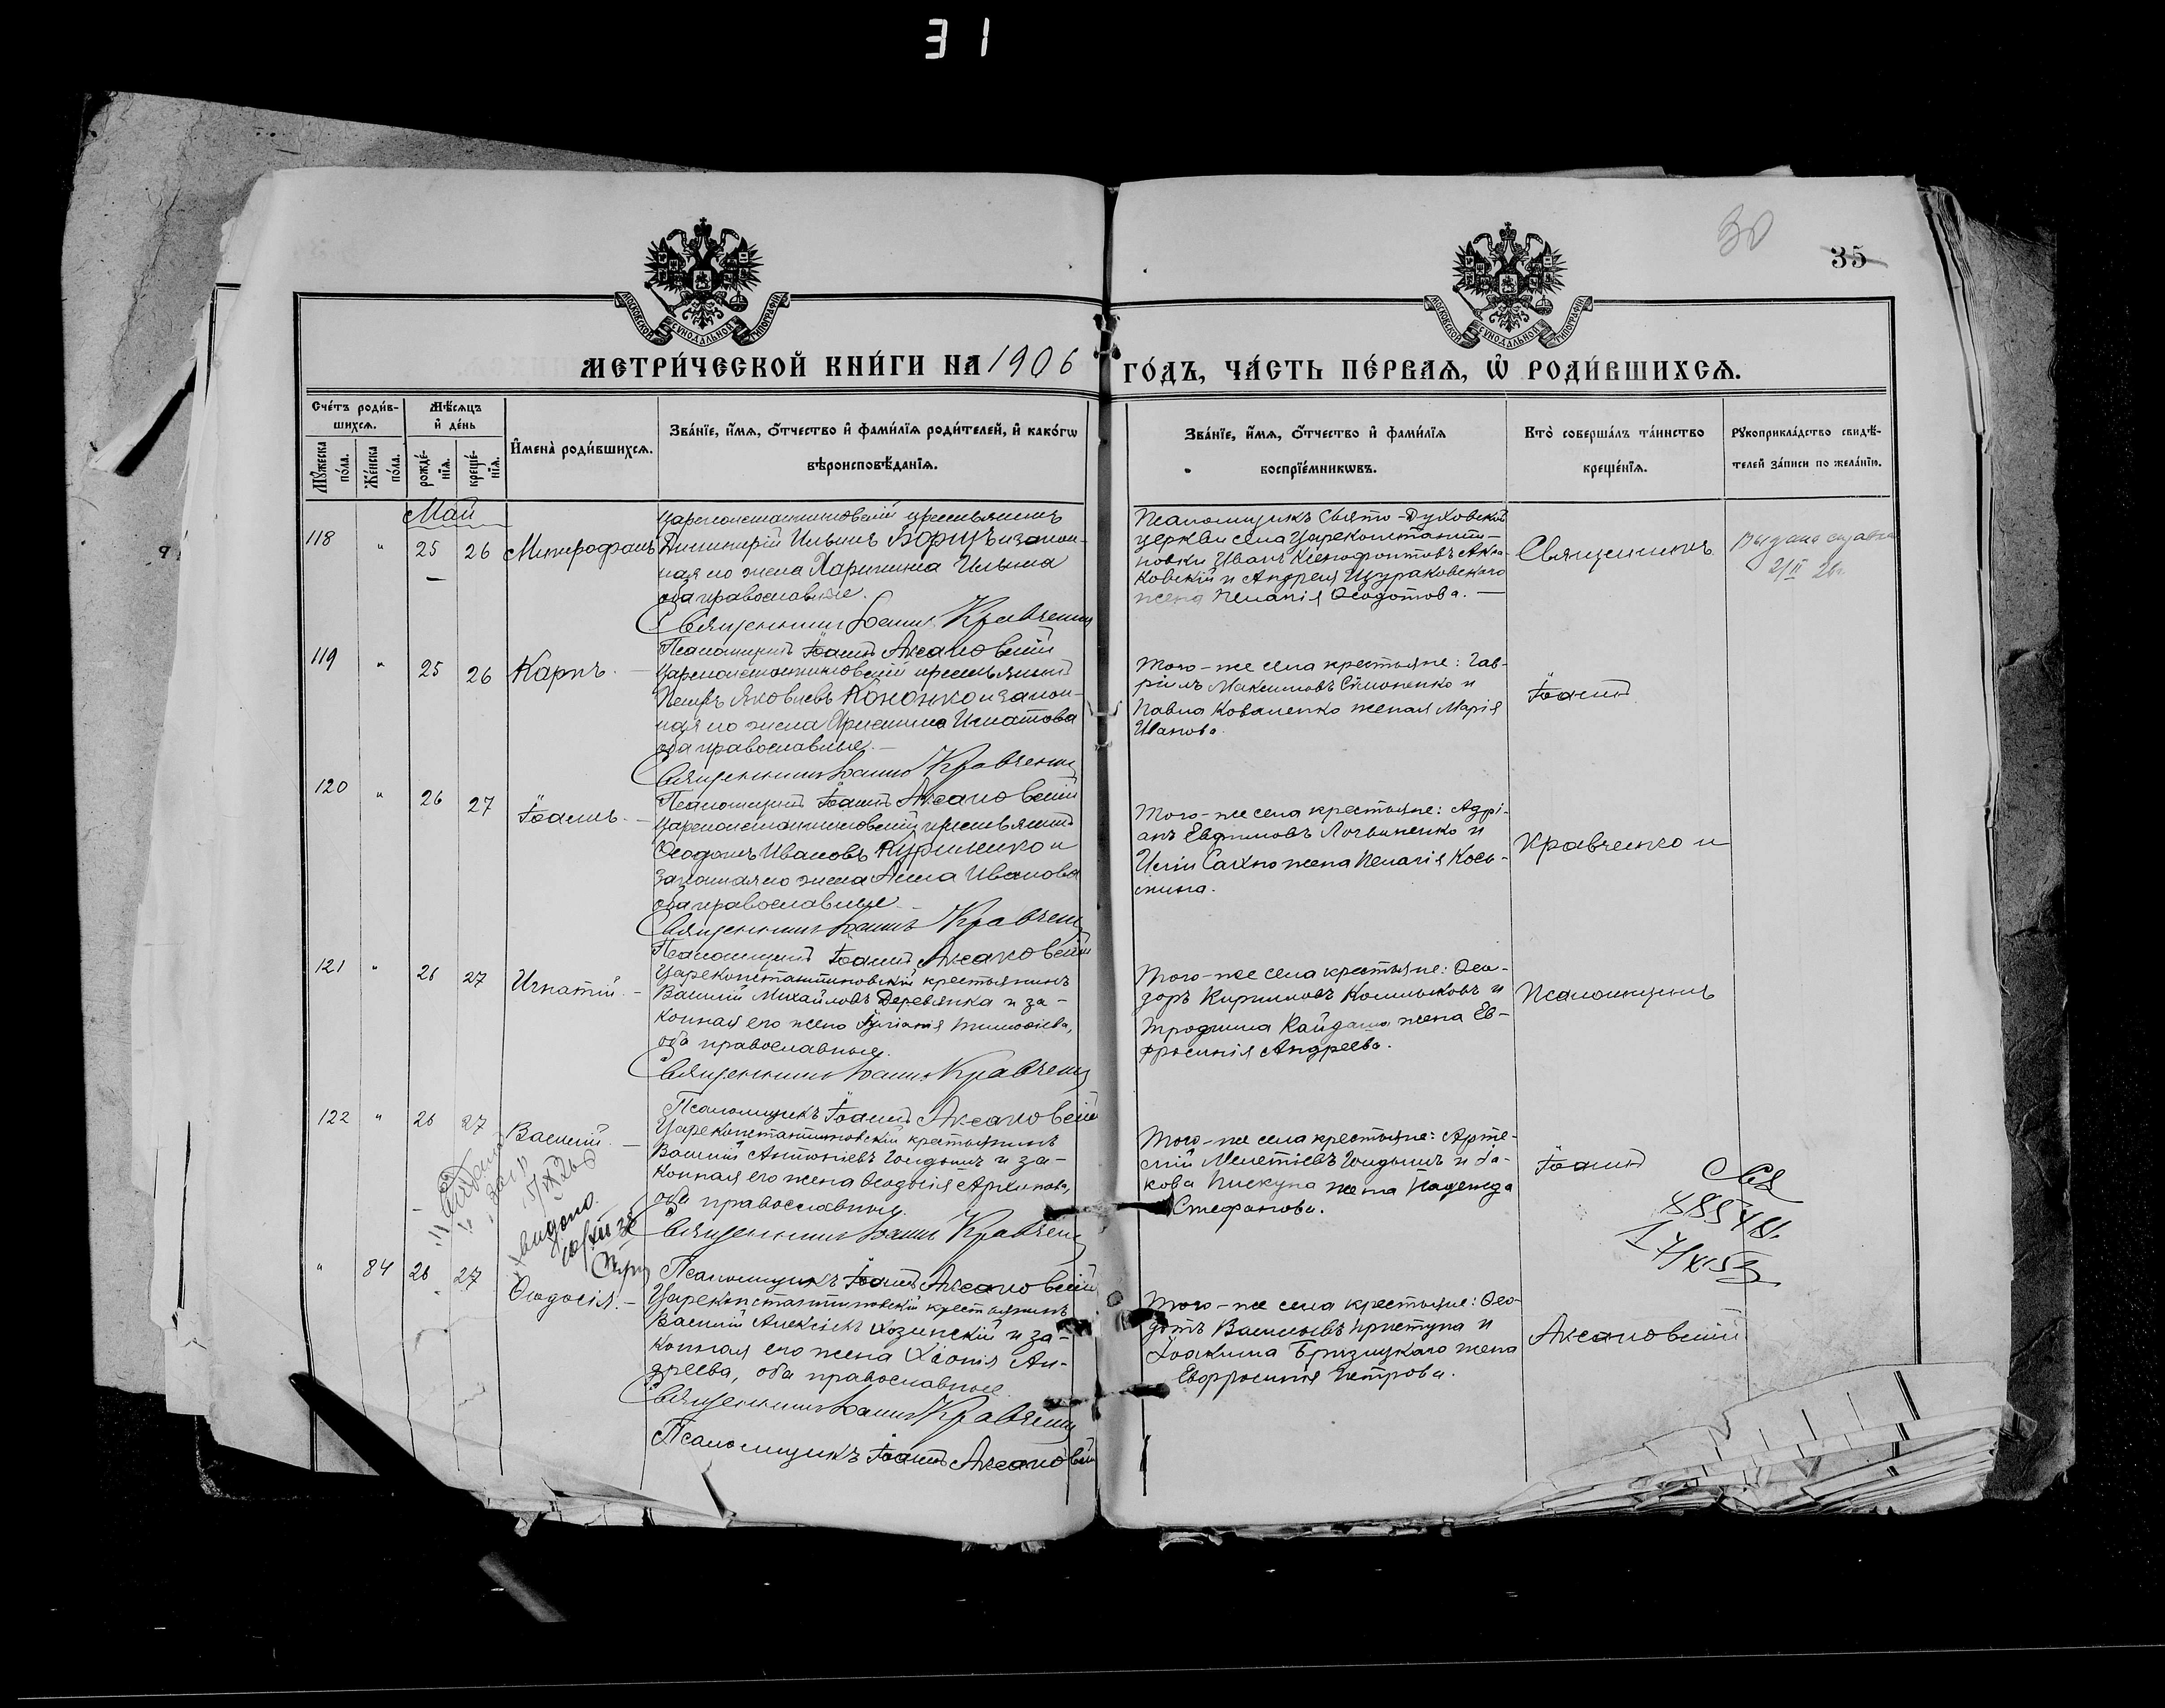 31
30
35
МОСКОВСКОЙ СѴНОДАЛЬНОЙ ТИПОГРАФІИ
МОСКОВСКОЙ СѴНОДАЛЬНОЙ ТИПОГРАФІИ
МЕТРИ́ЧЕСКОЙ КНИ́ГИ НА 1906 ГО́ДЪ, ЧА́СТЬ ПЕ́РВАѦ, Ѿ РОДИ́ВШИХСѦ.
Сче́тъ роди́в-
шихсѧ.
Мꙋ́жеска по́ла.
Же́нска по́ла.
Мѣ́сѧцъ
и҆ де́нь
рожде́-
нїѧ.
креще́-
нїѧ.
И҆мена̀ роди́вшихсѧ.
Зва́нїе, и҆́мѧ, ѻ҆́тчество и҆ фами́лїѧ роди́телей, и҆ како́гѡ
вѣроисповѣ́данїѧ.
Зва́нїе, и҆́мѧ, ѻ҆́тчество и҆ фами́лїѧ
воспрїе́мникѡвъ.
Кто̀ соверша́лъ та́инство
креще́нїѧ.
Рꙋкоприкла́дство свидѣ́-
телей за́писи по жела́нїю.
Май
118 " 25 26 Митрофанъ
Цареконстантиновскій крестьянинъ
Димитрій Ильинъ Борщъ и закон-
ная его жена Харитина Ильина
оба православные.
Священникъ Іоаннъ Кравченко
Псаломщикъ Іоаннъ Аксаковскій
Псаломщикъ Свято-Духовской
церкви села Цареконстанти-
новки Иванъ Ксенофонтовъ Акса-
ковскій и Андрея Щураковскаго
жена Пелагія Ѳеодотова. —
Священникъ
Выдана справка
2/II 26г.
119 " 25 26 Карпъ. —
Цареконстантиновскій крестьянинъ
Петръ Яковлевъ Кононко и закон-
ная его жена Христина Игнатова
оба православные. —
Священникъ Іоаннъ Кравченко
Псаломщикъ Іоаннъ Аксаковскій
Того-же села крестьяне: Гав-
ріилъ Максимовъ Симоненко и
Павла Коваленко жена Марія
Иванова.
Іоаннъ
120 " 26 27 Іоаннъ. —
Цареконстантиновскій крестьянинъ
Ѳеодотъ Ивановъ Куриленко и
законная его жена Анна Иванова
оба православные —
Священникъ Іоаннъ Кравченко
Псаломщикъ Іоаннъ Аксаковскій
Того-же села крестьяне: Адрі-
анъ Евфимовъ Логвиненко и
Иліи Сахно жена Пелагія Кось-
мина.
Кравченко и
121 " 26 27 Игнатій. —
Цареконстантиновскій крестьянинъ
Василій Михайловъ Деревянка и за-
конная его жена Іуліанія Тимоѳіева,
оба православные.
Священникъ Іоаннъ Кравченко
Псаломщикъ Іоаннъ Аксаковскій
Того-же села крестьяне: Ѳео-
доръ Кирилловъ Компаковъ и
Трофима Кайдаша жена Ев-
фросинія Андреева.
Псаломщикъ
122 " 26 27 Василій. —
Цареконстантиновскій крестьянинъ
Василій Антоніевъ Гондинъ и за-
конная его жена Ѳеодосія Архипова,
оба православные.
Священникъ Іоаннъ Кравченко
Псаломщикъ Іоаннъ Аксаковскій
Того-же села крестьяне: Арте-
мій Мелетіевъ Гондинъ и Іа-
кова Пискуна жена Надежда
Стефанова.
Іоаннъ
видано
" 84 26 27 Ѳеодосія. —
Цареконстантиновскій крестьянинъ
Василій Алексіевъ Хозинскій и за-
конная его жена Хіонія Ан-
дреева, оба православные.
Священникъ Іоаннъ Кравченко
Псаломщикъ Іоаннъ Аксаковскій
Того-же села крестьяне: Ѳео-
дотъ Васильевъ Приступа и
Іоакима Бризицкаго жена
Евфросинія Петрова.
Аксаковскій